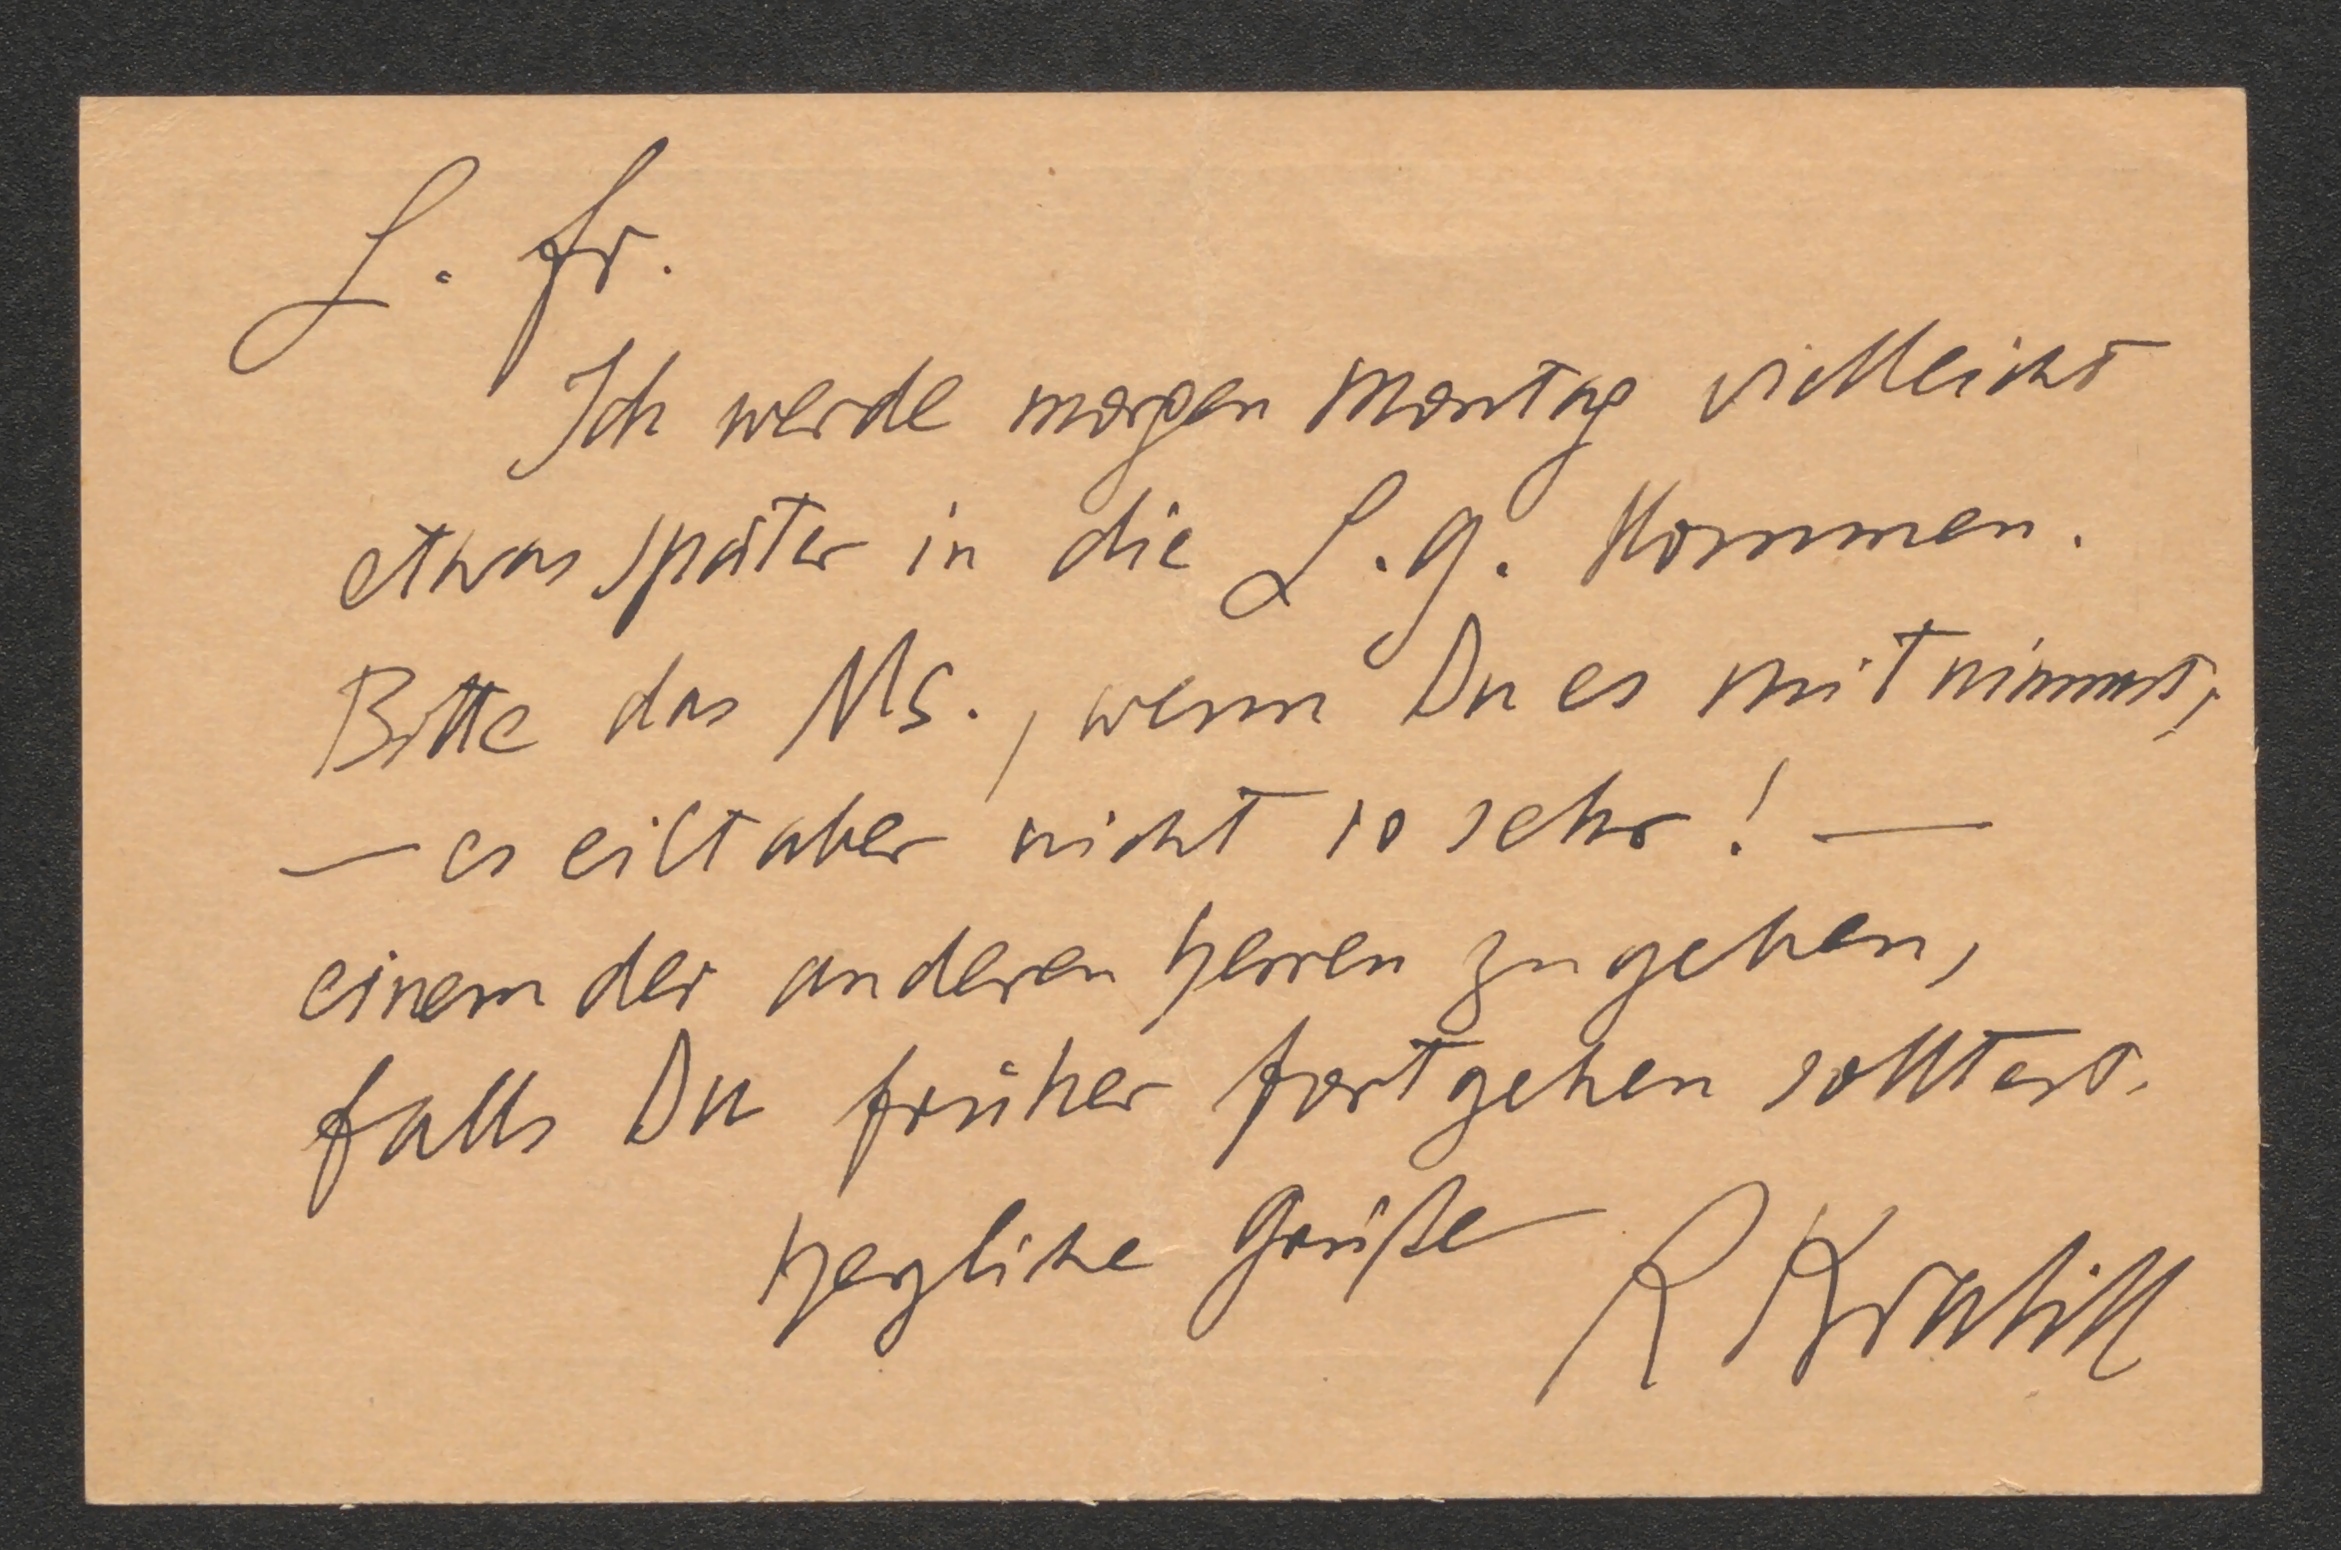 L. Fr.
Ich werde morgen Montag vielleicht
etwas später in die L. G. kommen.
Bitte das Ms., wenn Du es mitnimmst,
— es eilt aber nicht so sehr! —
einem der anderen Herren zu geben,
falls Du früher fortgehen solltest.
Herzliche Grüße R Kralik